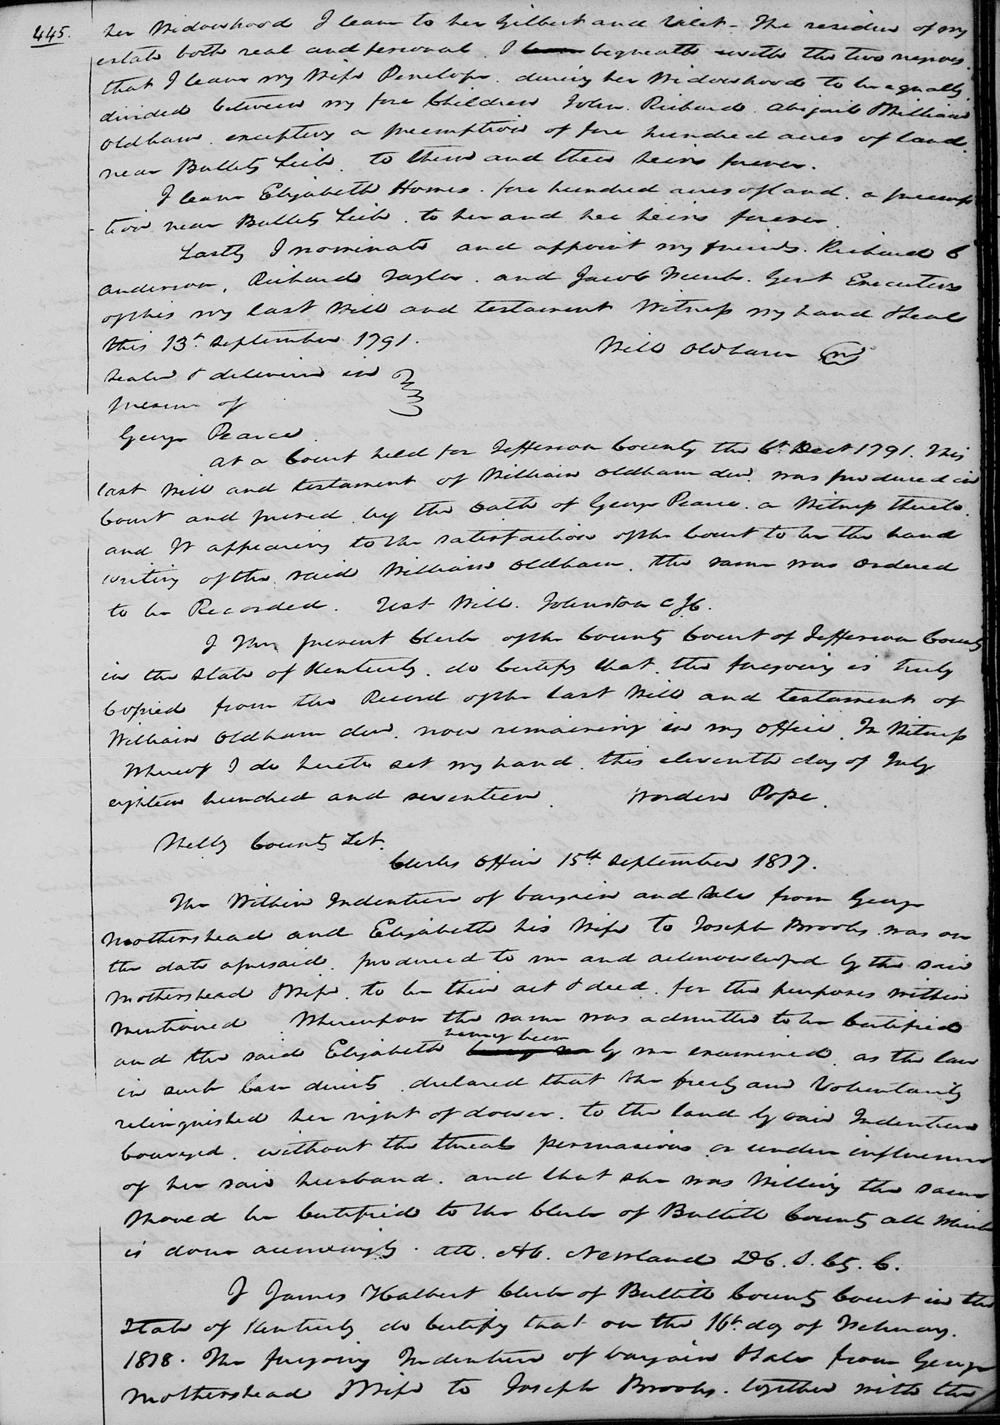 445.
her Widowhood I leave to her Gilbert and Violet - The residue of my
estate both real and personal I bequeath with the two negroes
that I leave my Wife Penelope during her Widowhood to be equally
divided between my four Children John Richard Abigail & William
Oldham excepting a preemption of four hundred acres of land
near Bullets Lick to them and their heirs forever.
I leave Elizabeth Homes four hundred acres of land a preemp
tion near Bullets Lick to her and her heirs forever
Lastly I nominate and appoint my friends Richard C
Anderson, Richard Taylor and Jacob Gent Executors
of this my last Will and testament Witness my hand & Seal
this 13th September 1791.
Will Oldham
Sealed & delivered in
presence of
George Pearce
At a Court held for Jefferson County the 6th Dect 1791. This
last Will and testament of William Oldham decd was produced in
Court and proved by the oath of George Pearce a Witness thereto
and It appearing to the satisfaction of the Court to be the hand
writing of the said William Oldham the same was ordered
to be Recorded. Test Will. Johnston C J C.
I present Clerk of the County Court of Jefferson County
in the State of Kentucky do Certify that the foregoing is truly
Copied from the Record of the last Will and testament of
William Oldham decd. now remaining in my office In Witness
Whereof I do hereto set my hand this eleventh day of July
eighteen hundred and seventeen Worden Pope.
Shelby County Sct.
Clerks Office 15th September 1817.
The Within Indenture of bargain and Sale from George
Mothershead and Elizabeth his Wife to Joseph Brooks was on
the date aforesaid produced to me and acknowledged by the said
Mothershead & Wife to be their act & deed for the purposes within
mentioned Whereupon the same was admitted to be Certified
and the said Elizabeth having been by me examined as the law
in such Case directs declared that she freely and Voluntarily
relinquished her right of dower to the land by said Indenture
Conveyed without the threats persuasions or undue influence
of her said husband and that she was Willing the same
Should be Certified to the Clerk of Bullitt County all which
is done accordingly. att. Ab. Newland D C. S. Cy. C.
I James Halbert Clerk of Bullitt County Court in the
State of Kentucky do Certify that on the 16th day of February
1818. The foregoing Indenture of bargain & Sale from George
Mothershead & Wife to Joseph Brooks together with the